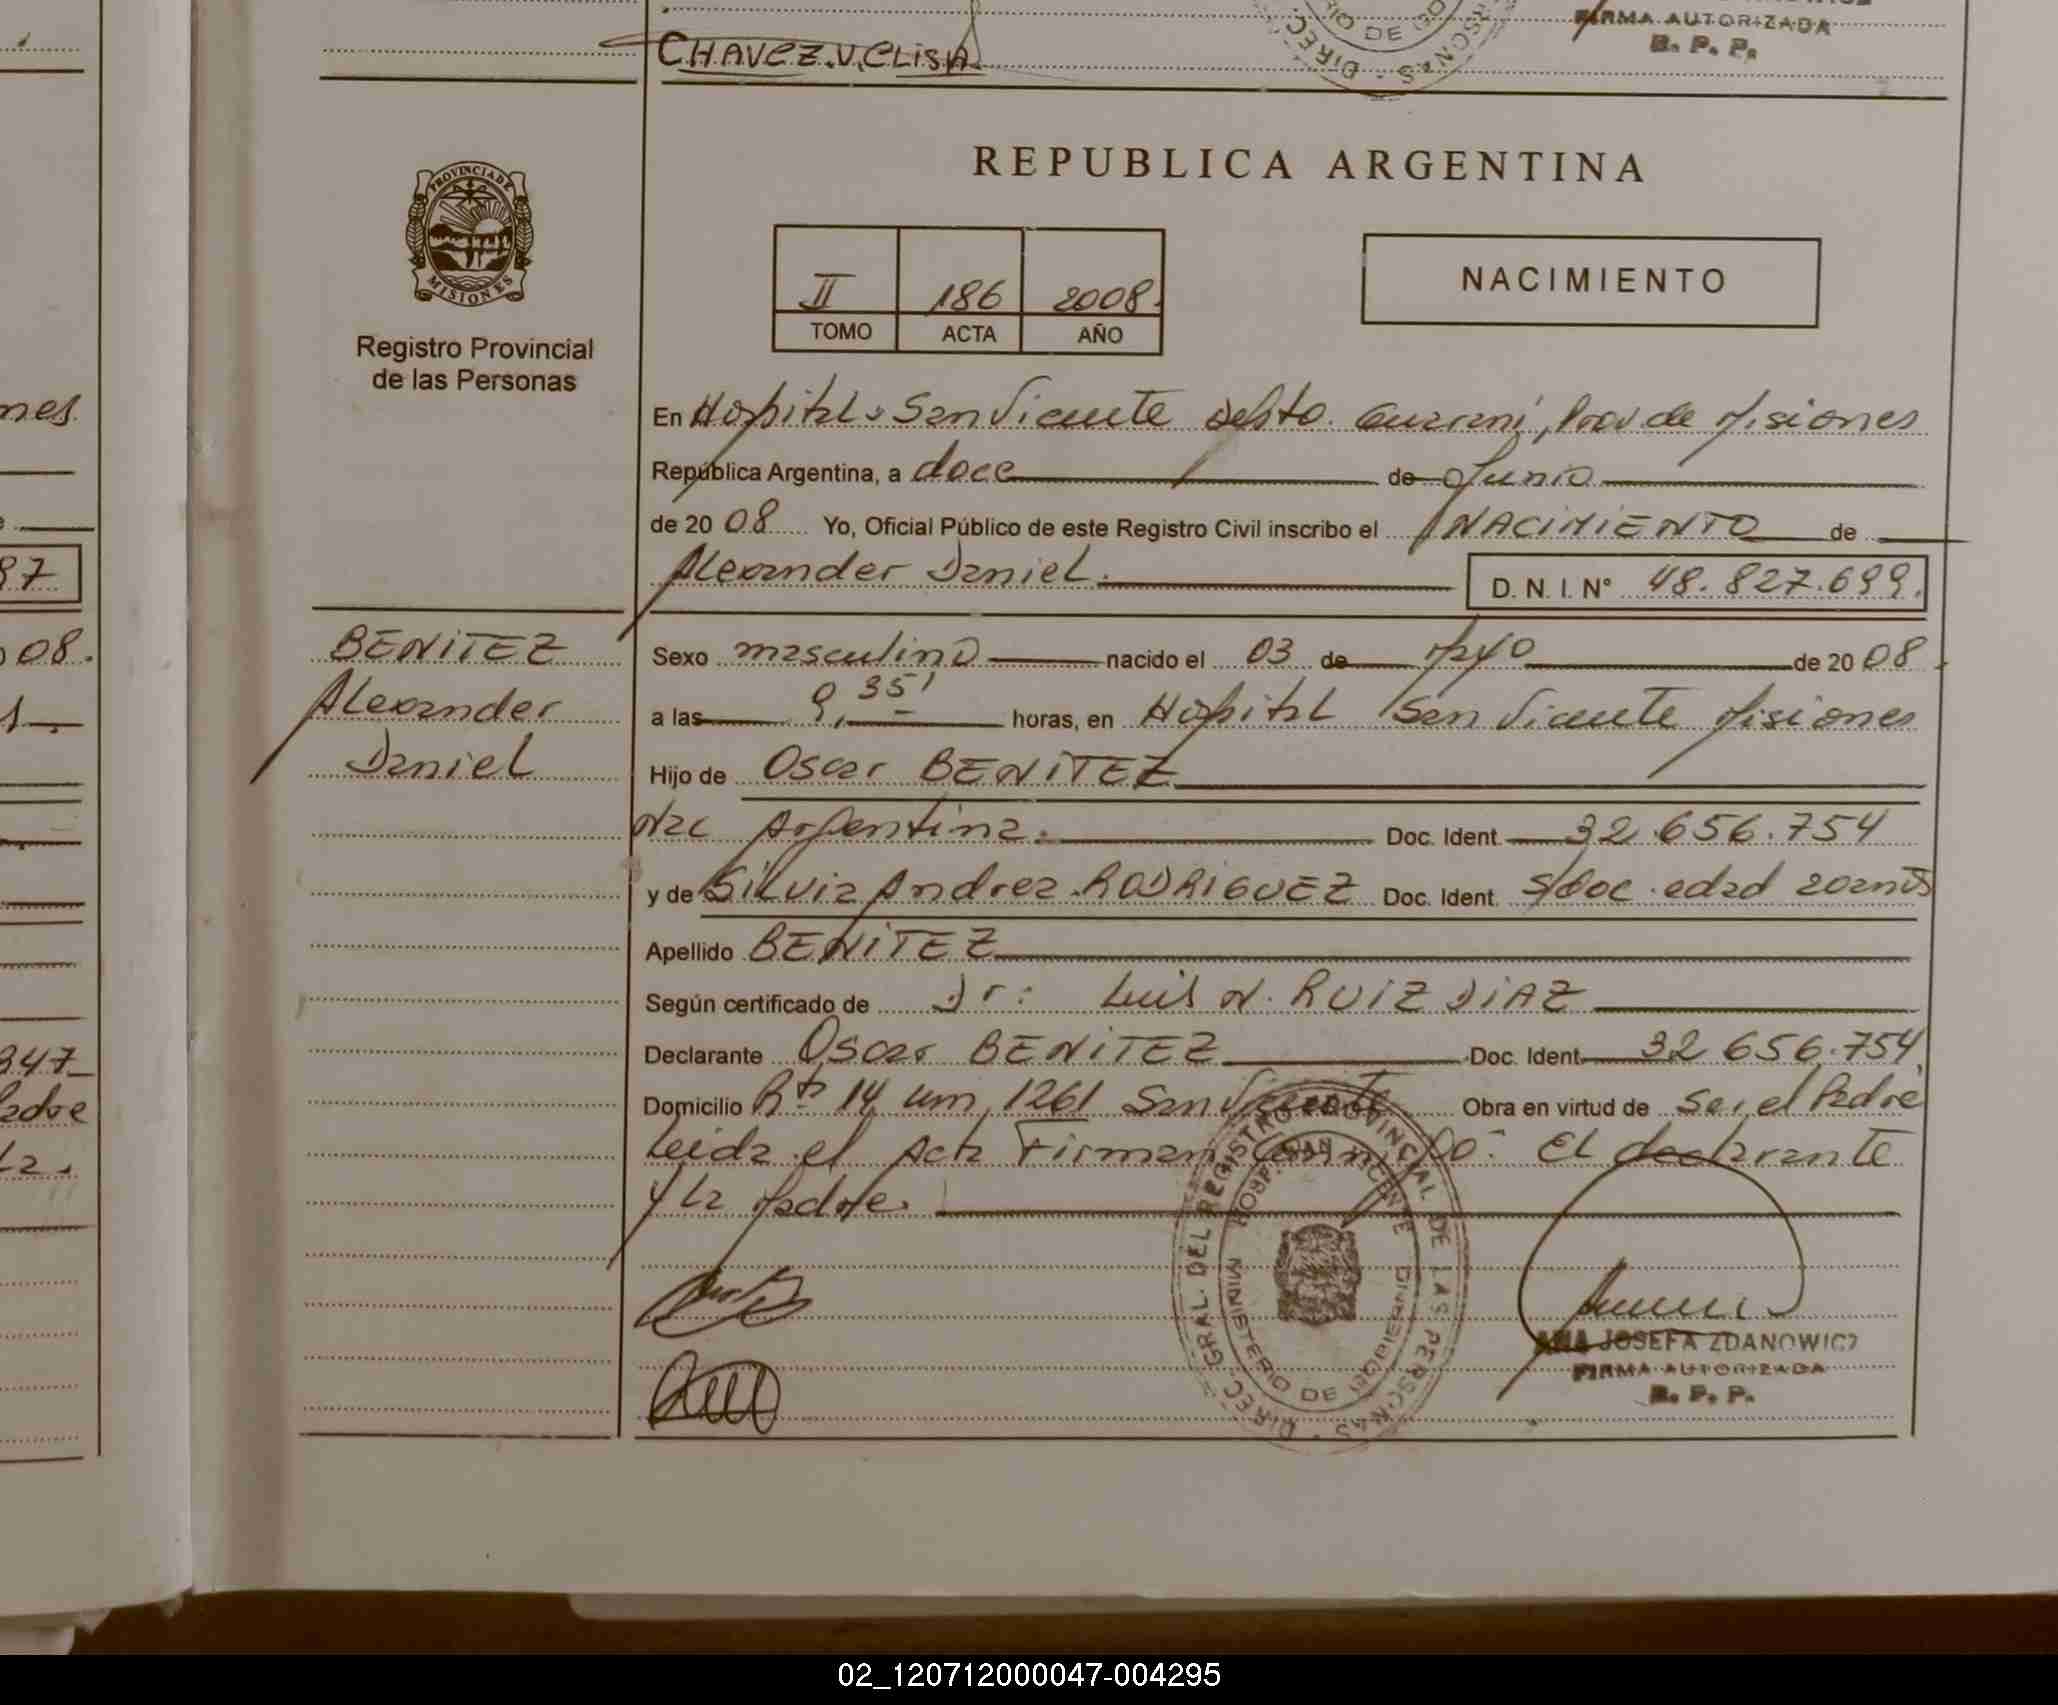 CHAVEZ.V.ELISA
FIRMA AUTORIZADA
R. P. P.
REPUBLICA ARGENTINA
PROVINCIA DE
MISIONES
Registro Provincial
de las Personas
II 186 2008.
TOMO ACTA AÑO
NACIMIENTO
En Hospital San Vicente Depto. Guarani, Prov de Misiones
Republica Argentina, a doce de Junio
de 20 08 Yo, Oficial Público de este Registro Civil inscribo el NACIMIENTO de
Alexander Daniel. D. N. I. N° 48.827.699.
BENITEZ
Alexander
Daniel
Sexo masculino nacido el 03 de Mayo de 20 08.
a las 9,35' horas, en Hospital San Vicente Misiones
Hijo de Oscar BENITEZ
Nac Argentina. Doc. Ident. 32.656.754
y de Silvia Andrea RODRIGUEZ Doc. Ident. S/doc. edad 20 años
Apellido BENITEZ
Según certificado de Dr: Luis N. RUIZ DIAZ
Declarante Oscar BENITEZ Doc. Ident. 32 656.754
Domicilio Rta 14 km 1261 San Vicente Obra en virtud de Ser el Padre
Leida el Acta Firman El declarante
y La Madre.
DIREC. GRAL. DEL REGISTRO PROVINCIAL DE LAS PERSONAS
HOSP. SAN VICENTE
MINISTERIO DE GOBIERNO
ANA JOSEFA ZDANOWICZ
FIRMA AUTORIZADA
R. P. P.
02_120712000047-004295